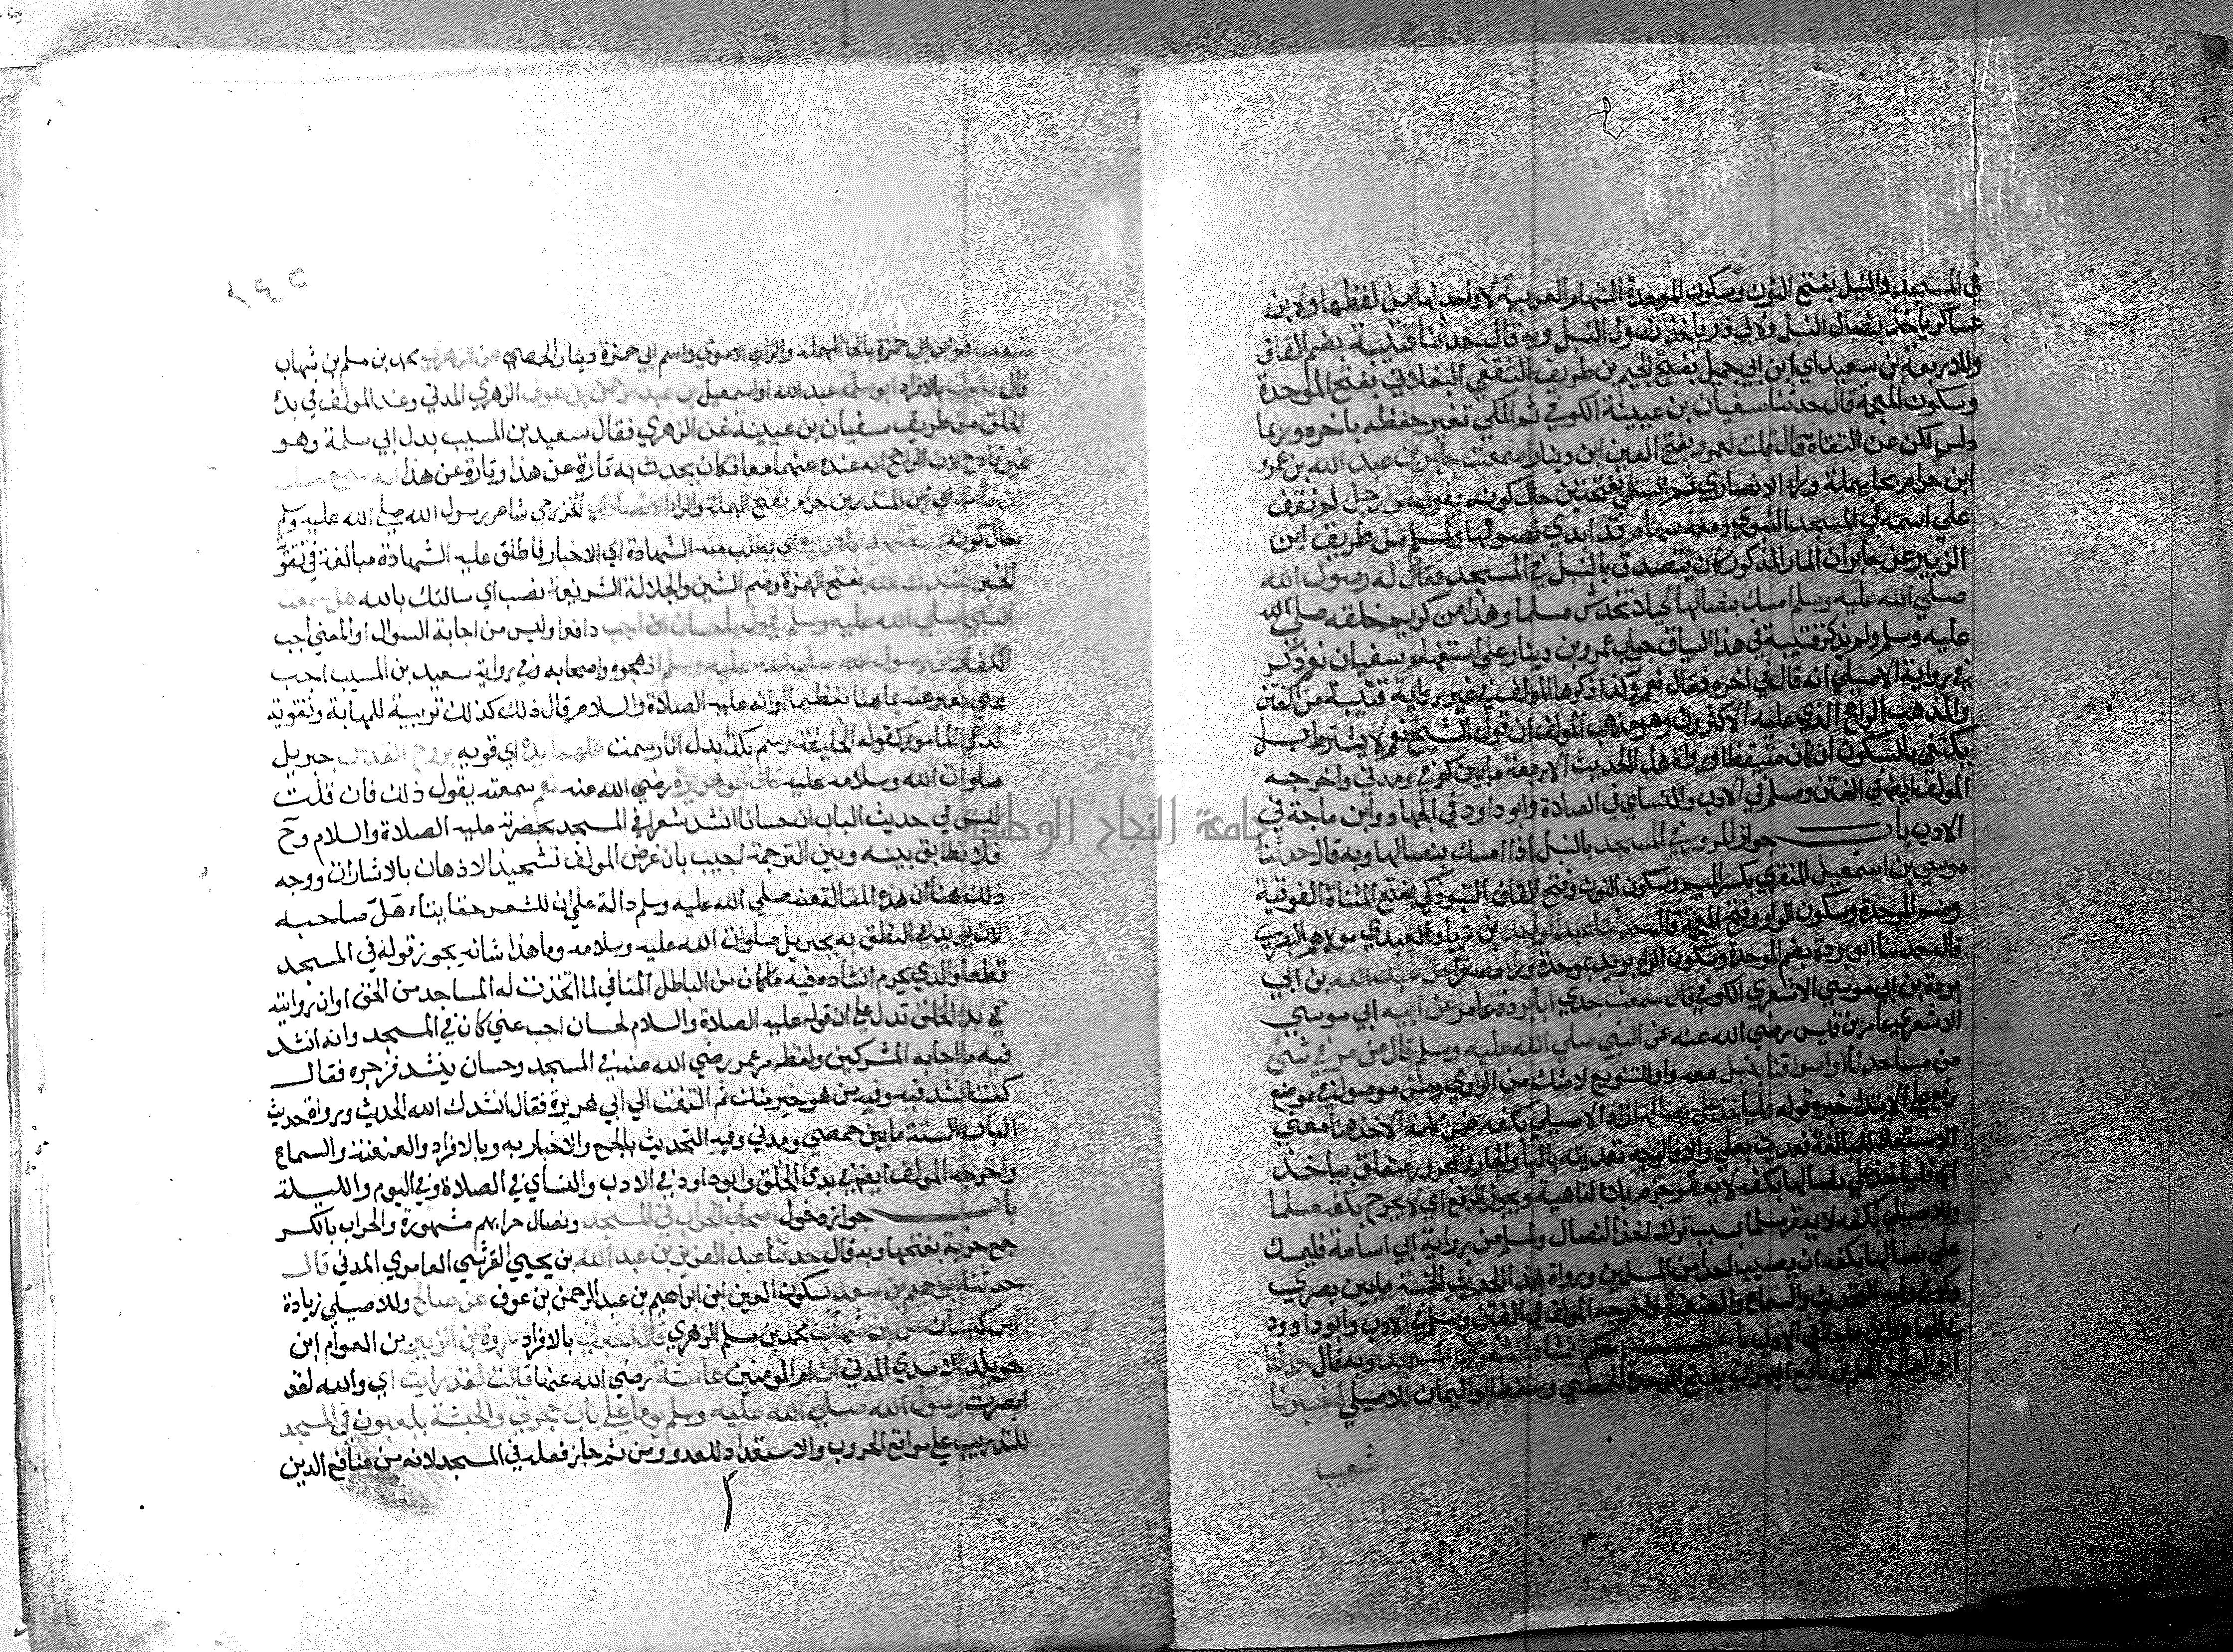 في المسجد والنبل بفتح النون وسكون الموحدة السهام العربية لا واحد لها من لفظها ولابن
عساكر ياخذ بنصال النبل ولابي ذر ياخذ نصول النبل وبه قال حدثنا قتيبة بضم القاف
ولا بن سعيد اي ابن ابي جميل بفتح الجيم بن طريف الثقفي البغلاني بفتح الموحدة
وسكون المعجمة قال حدثنا سفيان بن عيينة الكوفي ثم المكي تغير حفظه باخره وربما
دلس لكن عن الثقاة قال قلت لعمرو بفتح العين ابن دينار سمعت جابر بن عبد الله بن عمرو
ابن حرام بحا مهملة ورا الانصاري ثم السلمي بفتحتين حال كونه يقول مر رجل لم نقف
علي اسمه في المسجد النبوي ومعه سهام قد ابدي نصولها ولمسلم من طريق ابن
الزبير عن جابر ان المار المذكور كان يتصدق بالنبل في المسجد فقال له رسول الله
صلي الله عليه وسلم امسك بنصالها كيلا تخدش مسلما وهذا من كريم خلقه صلي الله
عليه وسلم ولم يذكر قتيبة في هذا السياق جواب عمرو بن دينار علي استفهام سفيان نعم ذكر
في رواية الاصيلي انه قال في اخره فقال نعم وكذا ذكرها المولف في غير رواية قتيبة من الفتن
والمذهب الراجح الذي عليه الاكثرون وهو مذهب المولف ان قول الشيخ نعم لا يشترط بل
يكتفي بالسكوت ان كان متيقظا ورواة هذا الحديث الاربعة ما بين كوفي ومدني واخرجه
المولف ايضا في الفتن ومسلم في الادب والنساي في الصلاة وابو داود في الجهاد وابن ماجة في
الادب باب جواز المرور في المسجد بالنبل اذا امسك بنصالها وبه قال حدثنا
موسي بن اسمعيل المنقري بكسر الميم وسكون النون وفتح القاف التبوذكي بفتح المثناة الفوقية
وضم الموحدة وسكون الواو وفتح المعجمة قال حدثنا عبد الواحد بن زياد العبدي مولاهم البصري
قال حدثنا ابو بردة بضم الموحدة وسكون الراء بريد بموحدة ورا مصغرا عن عبد الله بن ابي
بردة بن ابي موسي الاشعري الكوفي قال سمعت جدي ابا بردة عامر عن ابيه ابي موسي
الاشعري عامر بن قيس رضي الله عنه عن النبي صلي الله عليه وسلم قال من مر في شئ
من مساجدنا او اسواقنا بنبل معه واو للتنويع لا شك من الراوي ومن موصول في موضع
رفع علي الابتدا خبره قوله فلياخذ علي نصالها زاد الاصيلي بكفه ضمن كلمة الاخذ هنا معني
الاستعلا للمبالغة فعديت بعلي والا فالوجه تعديته بالبا والجار والمجرور متعلق بياخذ
اي فلياخذ علي نصالها بكفه لا يعقر جزم بلا الناهية ويجوز الرفع اي لا يجرح بكفه مسلما
وللاصيلي بكفه لا يعقر مسلما بسبب ترك اخذ النصال ولمسلم من رواية ابي اسامة فليمسك
علي نصالها بكفه ان يصيب احدا من المسلمين ورواة هذا الحديث الخمسة ما بين بصري
وكوفي وفيه التحديث والسماع والعنعنة واخرجه المولف في الفتن ومسلم في الادب وابو داوود
في الجهاد وابن ماجة في الادب باب حكم انشاد الشعر في المسجد وبه قال حدثنا
ابو اليمان الحكم بن نافع البهراني بفتح الموحدة الحمصي وسقط ابو اليمان للاصيلي اخبرنا
شعيب
شعيب هو ابن ابي حمزة بالحا المهملة والزاي الاموي واسم ابي حمزة دينار الحمصي عن الزهري محمد بن مسلم بن شهاب
قال اخبرني بالافراد ابو سلمة عبد الله او اسمعيل بن عبد الرحمن بن عوف الزهري المدني وعند المولف في بدء
الخلق من طريق سفيان بن عيينة عن الزهري فقال سعيد بن المسيب بدل ابي سلمة وهو
غير قادح لان الراجح انه عنده عنهما معا فكان يحدث به تارة عن هذا وتارة عن هذا
ابن ثابت اي ابن المنذر بن حرام بفتح المهملة والرا الانصاري الخزرجي شاعر رسول الله صلي الله عليه وسلم
حال كونه يستشهد ابا هريرة اي يطلب منه الشهادة اي الاخبار فاطلق عليه الشهادة مبالغة في تقوية
الخبر انشدك الله بفتح الهمزة وضم الشين والجلالة الشريفة نصب اي سالتك بالله هل سمعت
النبي صلي الله عليه وسلم يقول يا حسان اجب دافع او ليس من اجابة السوال او المعني اجب
الكفار عن رسول الله صلي الله عليه وسلم اذ هجوه واصحابه وفي رواية سعيد بن المسيب اجب
عني فعبر عنه بما هنا تعظيما او انه عليه الصلاة والسلام قال ذلك كذلك تربية للمهابة وتقوية
لداعي المامور كقوله الخليفة رسم بكذا بدل انا رسمت اللهم ايده اي قويه بروح القدس جبريل
صلوات الله وسلامه عليه قال ابو هريرة رضي الله عنه نعم سمعته يقول ذلك فان قلت
ليس في حديث الباب ان حسانا انشد شعرا في المسجد بحضرته عليه الصلاة والسلام وح
فلا تطابق بينه وبين الترجمة اجيب بان غرض المولف تشحيذ الاذهان بالاشارات ووجه
ذلك هنا ان هذه المقالة منه صلي الله عليه وسلم دالة علي ان للشعر حقا يتاهل صاحبه
لان يويد في النطق به بجبريل صلوات الله عليه وسلامه وما هذا شانه يجوز قوله في المسجد
قطعا والذي يحرم انشاده فيه ما كان من الباطل المنافي لما اتخذت له المساجد من الحق او ان روايته
في بدء الخلق تدل علي ان قوله عليه الصلاة والسلام لحسان اجب عني كان في المسجد وانه انشد
فيه ما اجاب به المشركين ولفظه مر عمر رضي الله عنه في المسجد وحسان ينشد فزجره فقال
كنت انشد فيه وفيه من هو خير منك ثم التفت الي ابي هريرة فقال انشدك الله الحديث ورواة حديث
الباب الستة ما بين حمصي ومدني وفيه التحديث بالجمع والاخبار به وبالافراد والعنعنة والسماع
واخرجه المولف ايضا في بدئ الخلق وابو داود في الادب والنساي في الصلاة وفي اليوم والليلة
باب جواز دخول اصحاب الحراب في المسجد ونصال حرابهم مشهورة والحراب بالكسر
جمع حربة بفتحها وبه قال حدثنا عبد العزيز بن عبد الله بن يحيي القرشي العامري المدني قال
حدثنا ابراهيم بن سعد بسكون العين ابن ابراهيم بن عبد الرحمن بن عوف عن صالح وللاصيلي زيادة
ابن كيسان عن ابن شهاب محمد بن مسلم الزهري قال اخبرني بالافراد عروة بن الزبير بن العوام ابن
خويلد الاسدي المدني ان ام المومنين عائشة رضي الله عنها قالت لقد رايت اي والله لقد
ابصرت رسول الله صلي الله عليه وسلم يوما علي باب حجرتي والحبشة يلعبون في المسجد
للتدريب علي مواقع الحروب والاستعداد للعدو ومن ثم جاز فعله في المسجد لانه من منافع الدين
جامعة النجاح الوطنية